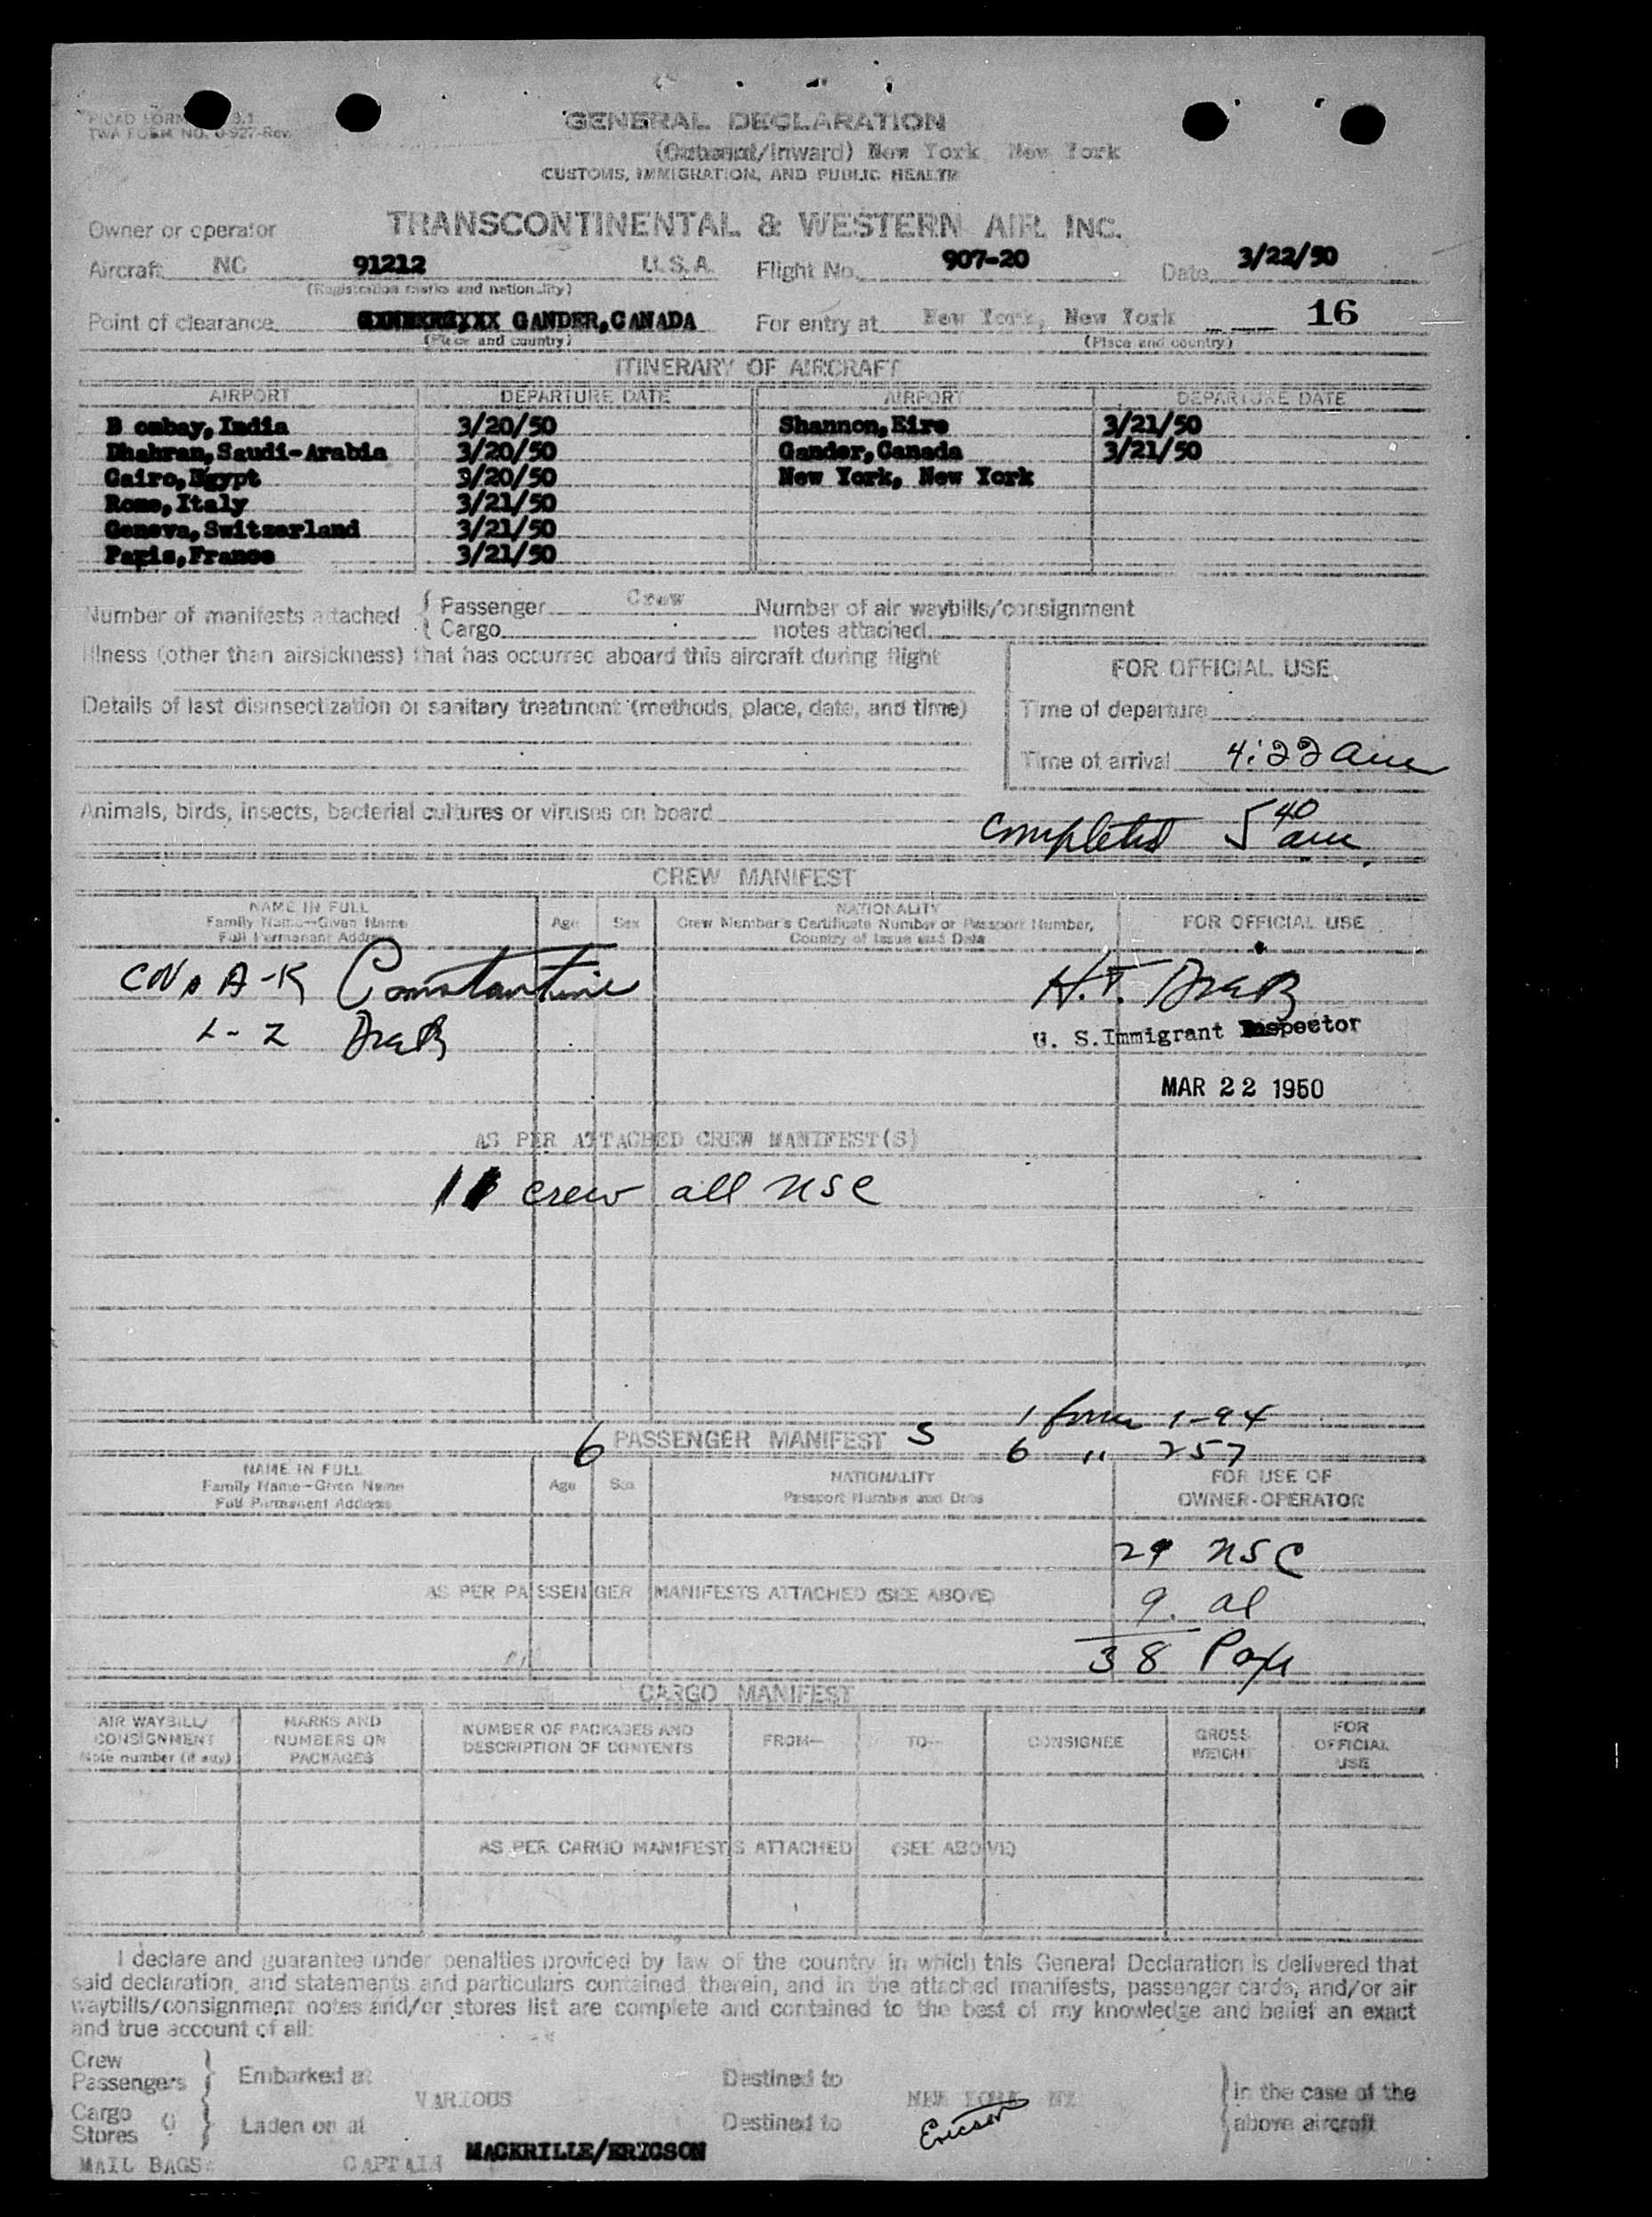 TWA FORM NO. 0-927-Rev.
GENERAL DECLARATION
(Outward/Inward) New York, New York
CUSTOMS, IMMIGRATION, AND PUBLIC HEALTH
Owner or operator TRANSCONTINENTAL & WESTERN AIR, INC.
Aircraft NC 91212 U.S.A. Flight No. 907-20 Date 3/22/50
(Registration marks and nationality)
Point of clearance GANDER,CANADA For entry at New York, New York 16
(Place and country) (Place and country)
ITINERARY OF AIRCRAFT
AIRPORT DEPARTURE DATE AIRPORT DEPARTURE DATE
B ombay,India 3/20/50 Shannon,Eire 3/21/50
Dhahran,Saudi-Arabia 3/20/50 Gander,Canada 3/21/50
Cairo,Egypt 3/20/50 New York, New York
Rome,Italy 3/21/50
Geneva,Switzerland 3/21/50
Paris,France 3/21/50
Number of manifests attached { Passenger Crew Number of air waybills/consignment
Cargo notes attached
Illness (other than airsickness) that has occurred aboard this aircraft during flight
FOR OFFICIAL USE
Details of last disinsectization or sanitary treatment (methods, place, date, and time)
Time of departure
Time of arrival 4:22 am
Animals, birds, insects, bacterial cultures or viruses on board
Completed 5 40 am
CREW MANIFEST
NAME IN FULL Family Name—Given Name Full Permanent Address Age Sex NATIONALITY Crew Member's Certificate Number or Passport Number, Country of Issue and Date FOR OFFICIAL USE
A-K Constantine H.T.
L-Z
U. S. Immigrant Inspector
MAR 22 1950
AS PER ATTACHED CREW MANIFEST(S)
11 crew all USC
1 form I-94
6 PASSENGER MANIFEST S 6 " 257
NAME IN FULL Family Name—Given Name Full Permanent Address Age Sex NATIONALITY Passport Number and Date FOR USE OF OWNER-OPERATOR
29 USC
AS PER PASSENGER MANIFESTS ATTACHED (SEE ABOVE)
9. al
38 Pax
CARGO MANIFEST
AIR WAYBILL/ CONSIGNMENT Note number (if any) MARKS AND NUMBERS ON PACKAGES NUMBER OF PACKAGES AND DESCRIPTION OF CONTENTS FROM— TO— CONSIGNEE GROSS WEIGHT FOR OFFICIAL USE
AS PER CARGO MANIFESTS ATTACHED (SEE ABOVE)
I declare and guarantee under penalties provided by law of the country in which this General Declaration is delivered that
said declaration, and statements and particulars contained therein, and in the attached manifests, passenger cards, and/or air
waybills/consignment notes and/or stores list are complete and contained to the best of my knowledge and belief an exact
and true account of all:
Crew
Passengers } Embarked at VARIOUS Destined to NEW YORK NY } In the case of the
Cargo
Stores } Laden on at Destined to above aircraft
Ericson
MAIL BAGS: CAPTAIN MACKRILLE/ERICSON